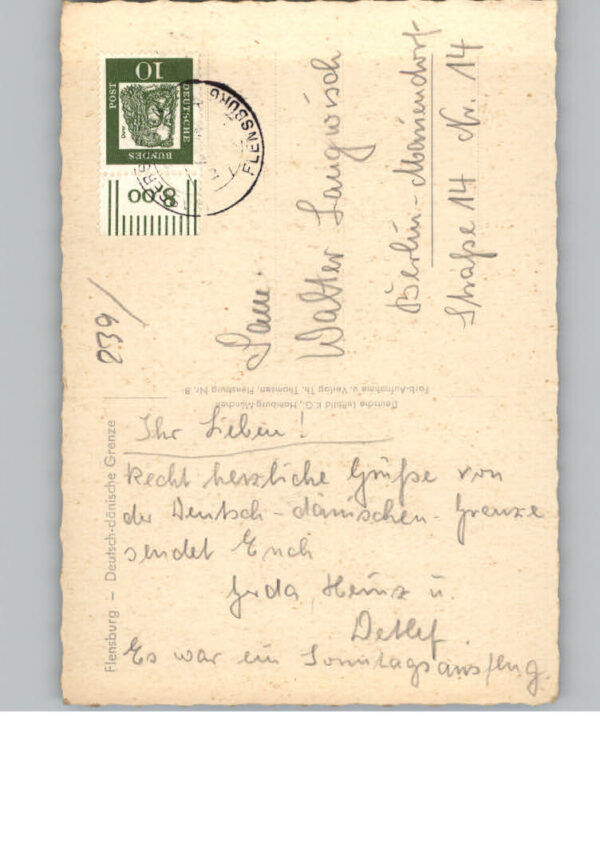 Flensburg – Deutsch-dänische Grenze
Ihr Lieben!
Recht herzliche Grüße von
der Deutsch-dänischen-Grenze
sendet Euch
Gerda, Heinz u.
Detlef
Es war ein Sonntagsausflug.
Deutsche Luftbild K.G., Hamburg-München
Farb-Aufnahme u. Verlag Th. Thomsen, Flensburg Nr. 8
Fam.
Walter Langwisch
Berlin-Mariendorf
Straße 14 Nr. 14
239/
DEUTSCHE
BUNDES
POST
10
Dürer
8.00
FLENSBURG